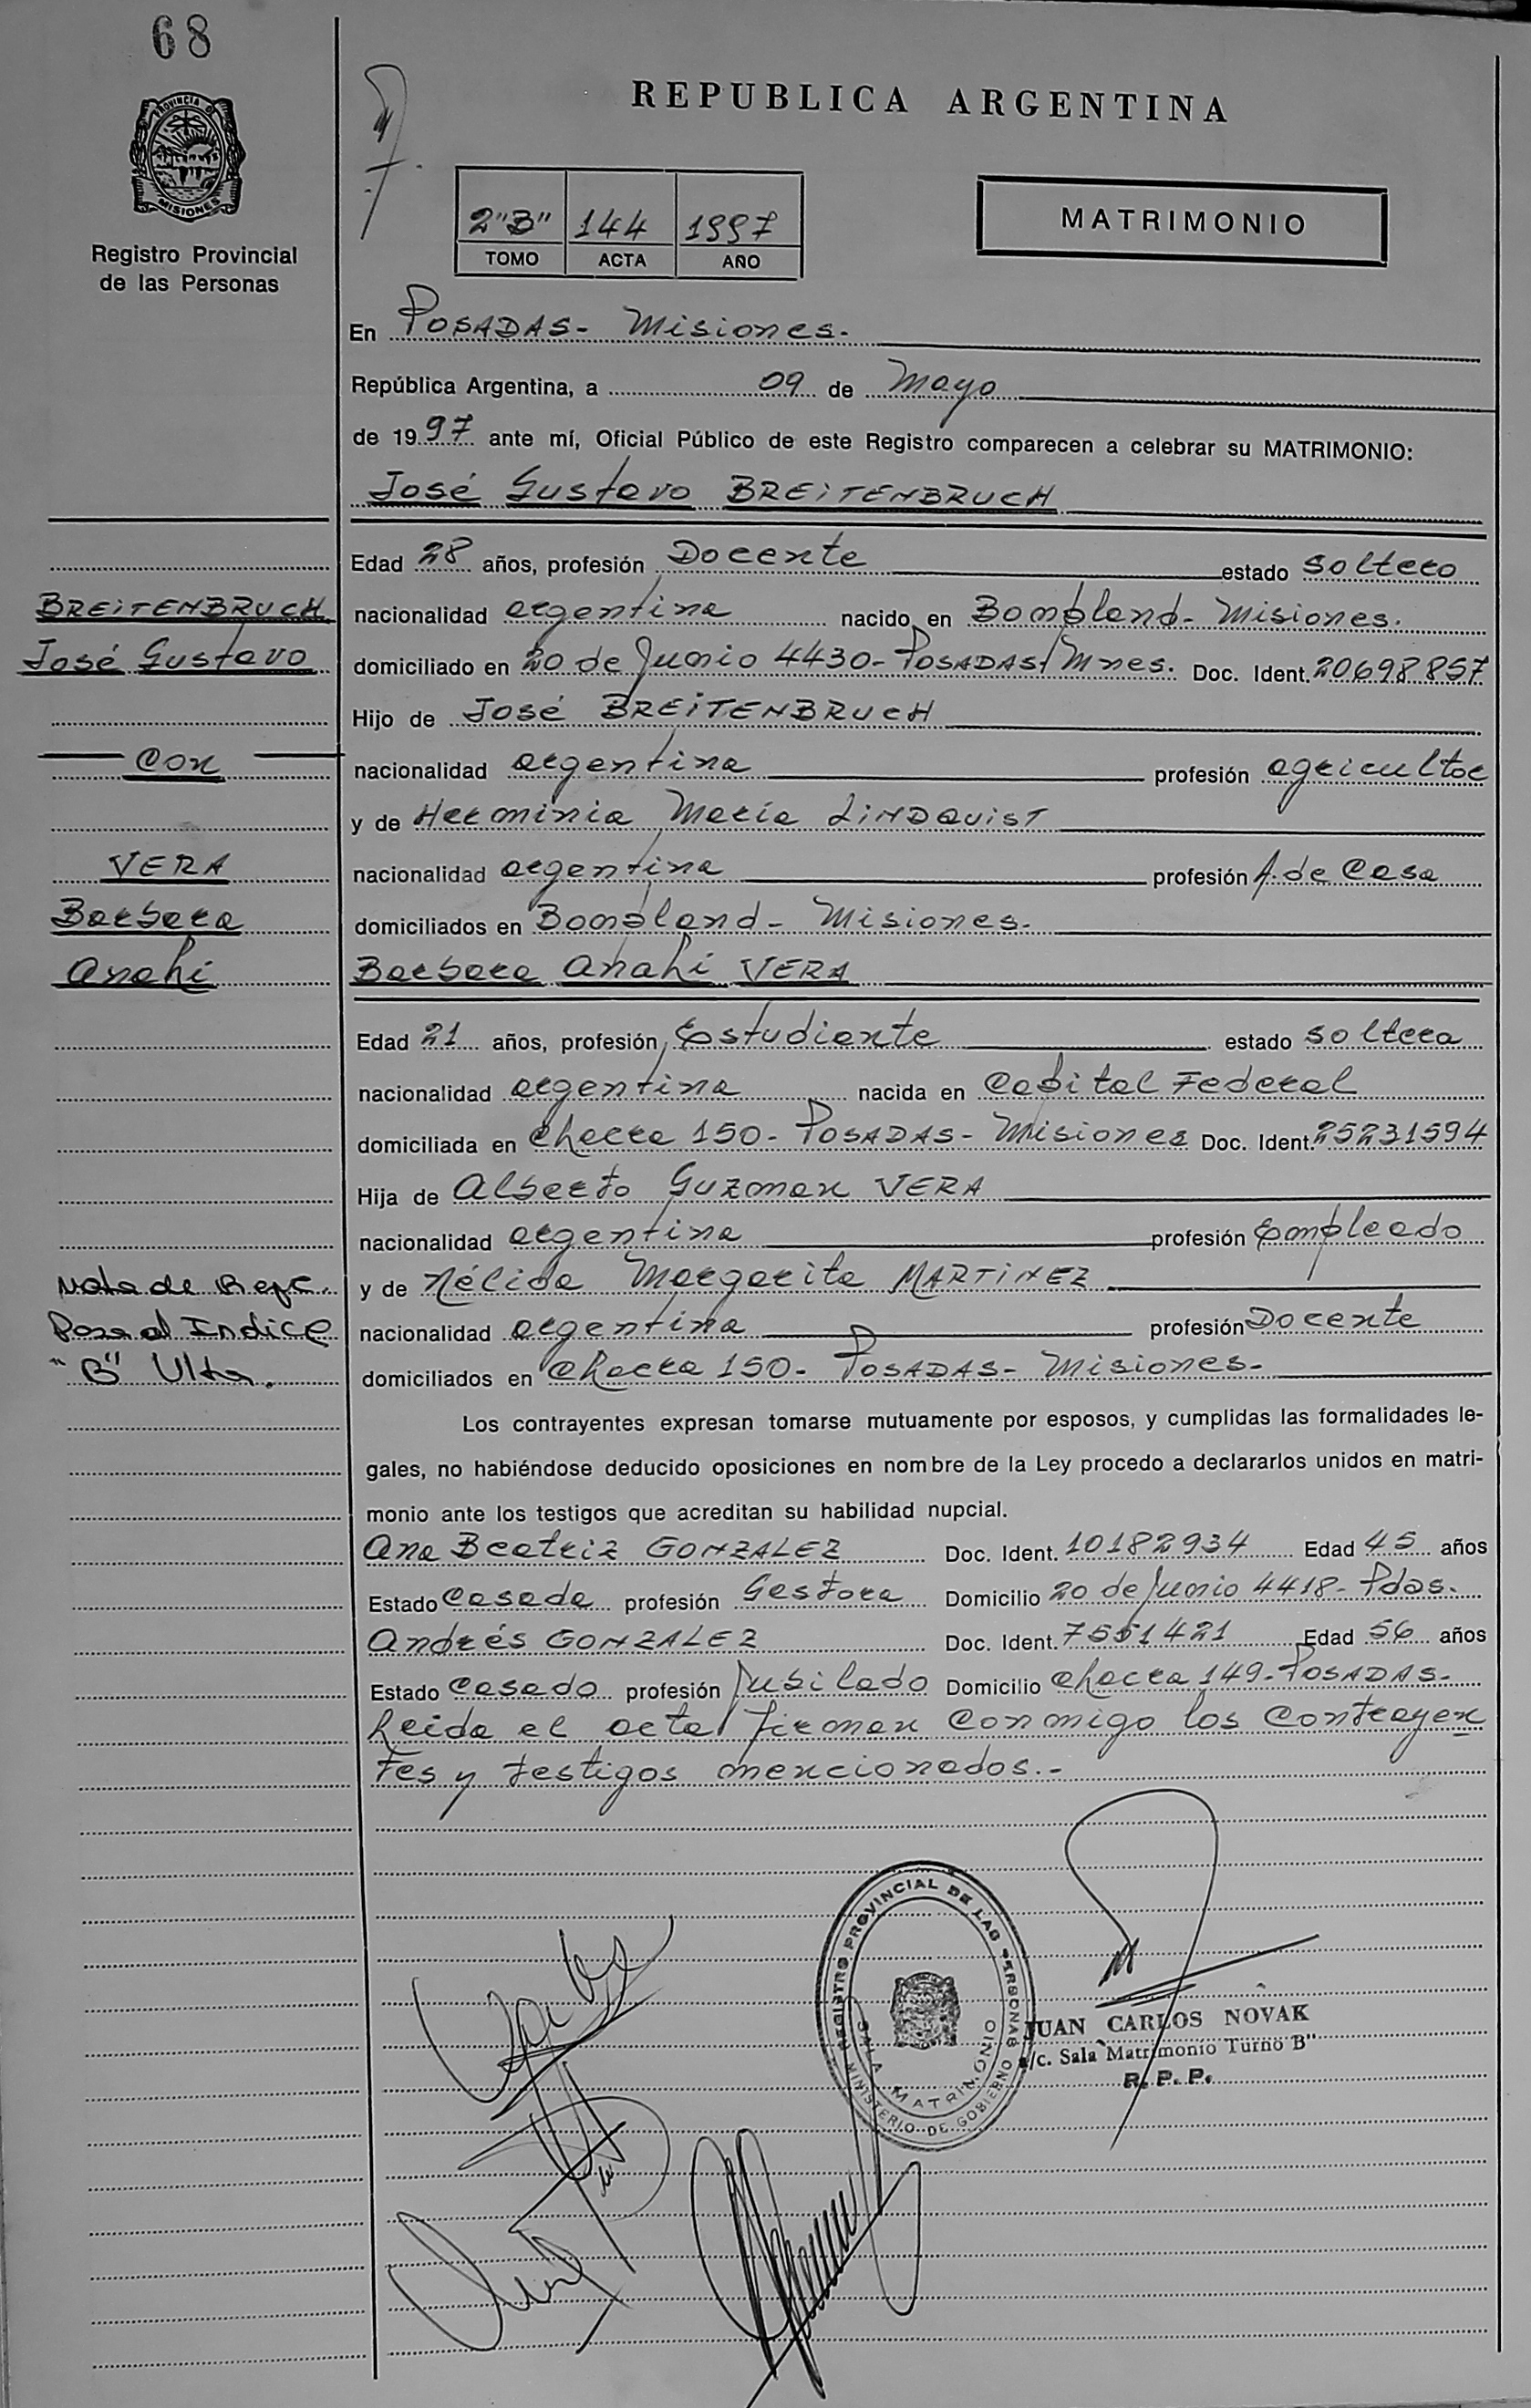 68
PROVINCIA DE
MISIONES
Registro Provincial
de las Personas
REPUBLICA ARGENTINA
2"B" 144 1997
TOMO ACTA AÑO
MATRIMONIO
En POSADAS- Misiones.
República Argentina, a 09 de Mayo
de 1997 ante mí, Oficial Público de este Registro comparecen a celebrar su MATRIMONIO:
José Gustavo BREITENBRUCH
Edad 28 años, profesión Docente estado soltero
BREITENBRUCH
nacionalidad argentina nacido en Bompland- Misiones.
José Gustavo
domiciliado en 20 de Junio 4430- POSADAS/Mnes. Doc. Ident. 20698857
Hijo de José BREITENBRUCH
con
nacionalidad argentina profesión agricultor
y de Herminia María LINDQUIST
VERA
nacionalidad argentina profesión A. de Casa
Barbara
domiciliados en Bompland- Misiones.
Anahi
Barbara Anahi VERA
Edad 21 años, profesión Estudiante estado soltera
nacionalidad argentina nacida en Capital Federal
domiciliada en Chacra 150- POSADAS- Misiones Doc. Ident. 25231594
Hija de Alberto Guzman VERA
nacionalidad argentina profesión Empleado
Nota de Refc.
y de Nélida Margarita MARTINEZ
Pasa al Indice
nacionalidad argentina profesión Docente
"B"
domiciliados en Chacra 150- POSADAS- Misiones-
Los contrayentes expresan tomarse mutuamente por esposos, y cumplidas las formalidades le-
gales, no habiéndose deducido oposiciones en nombre de la Ley procedo a declararlos unidos en matri-
monio ante los testigos que acreditan su habilidad nupcial.
Ana Beatriz GONZALEZ Doc. Ident. 10182934 Edad 45 años
Estado Casada profesión Gestora Domicilio 20 de Junio 4418- Pdas.
Andrés GONZALEZ Doc. Ident. 7551421 Edad 56 años
Estado Casado profesión Jubilado Domicilio Chacra 149- POSADAS-
Leida el acta firman conmigo los Contrayen
tes y testigos mencionados.-
REGISTRO PROVINCIAL DE LAS PERSONAS
SALA MATRIMONIO
MINISTERIO DE GOBIERNO
JUAN CARLOS NOVAK
a/c. Sala Matrimonio Turno B"
R. P. P.